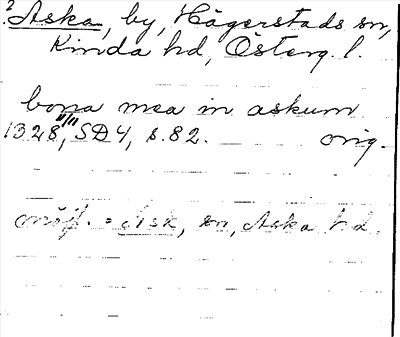 2 Aska, by, Hägerstads sn,
Kinda hd, Österg. l.
bona mea in askum
1328 11/11, SD 4, s. 82. orig.
möjl. = Ask, sn, Aska hd.